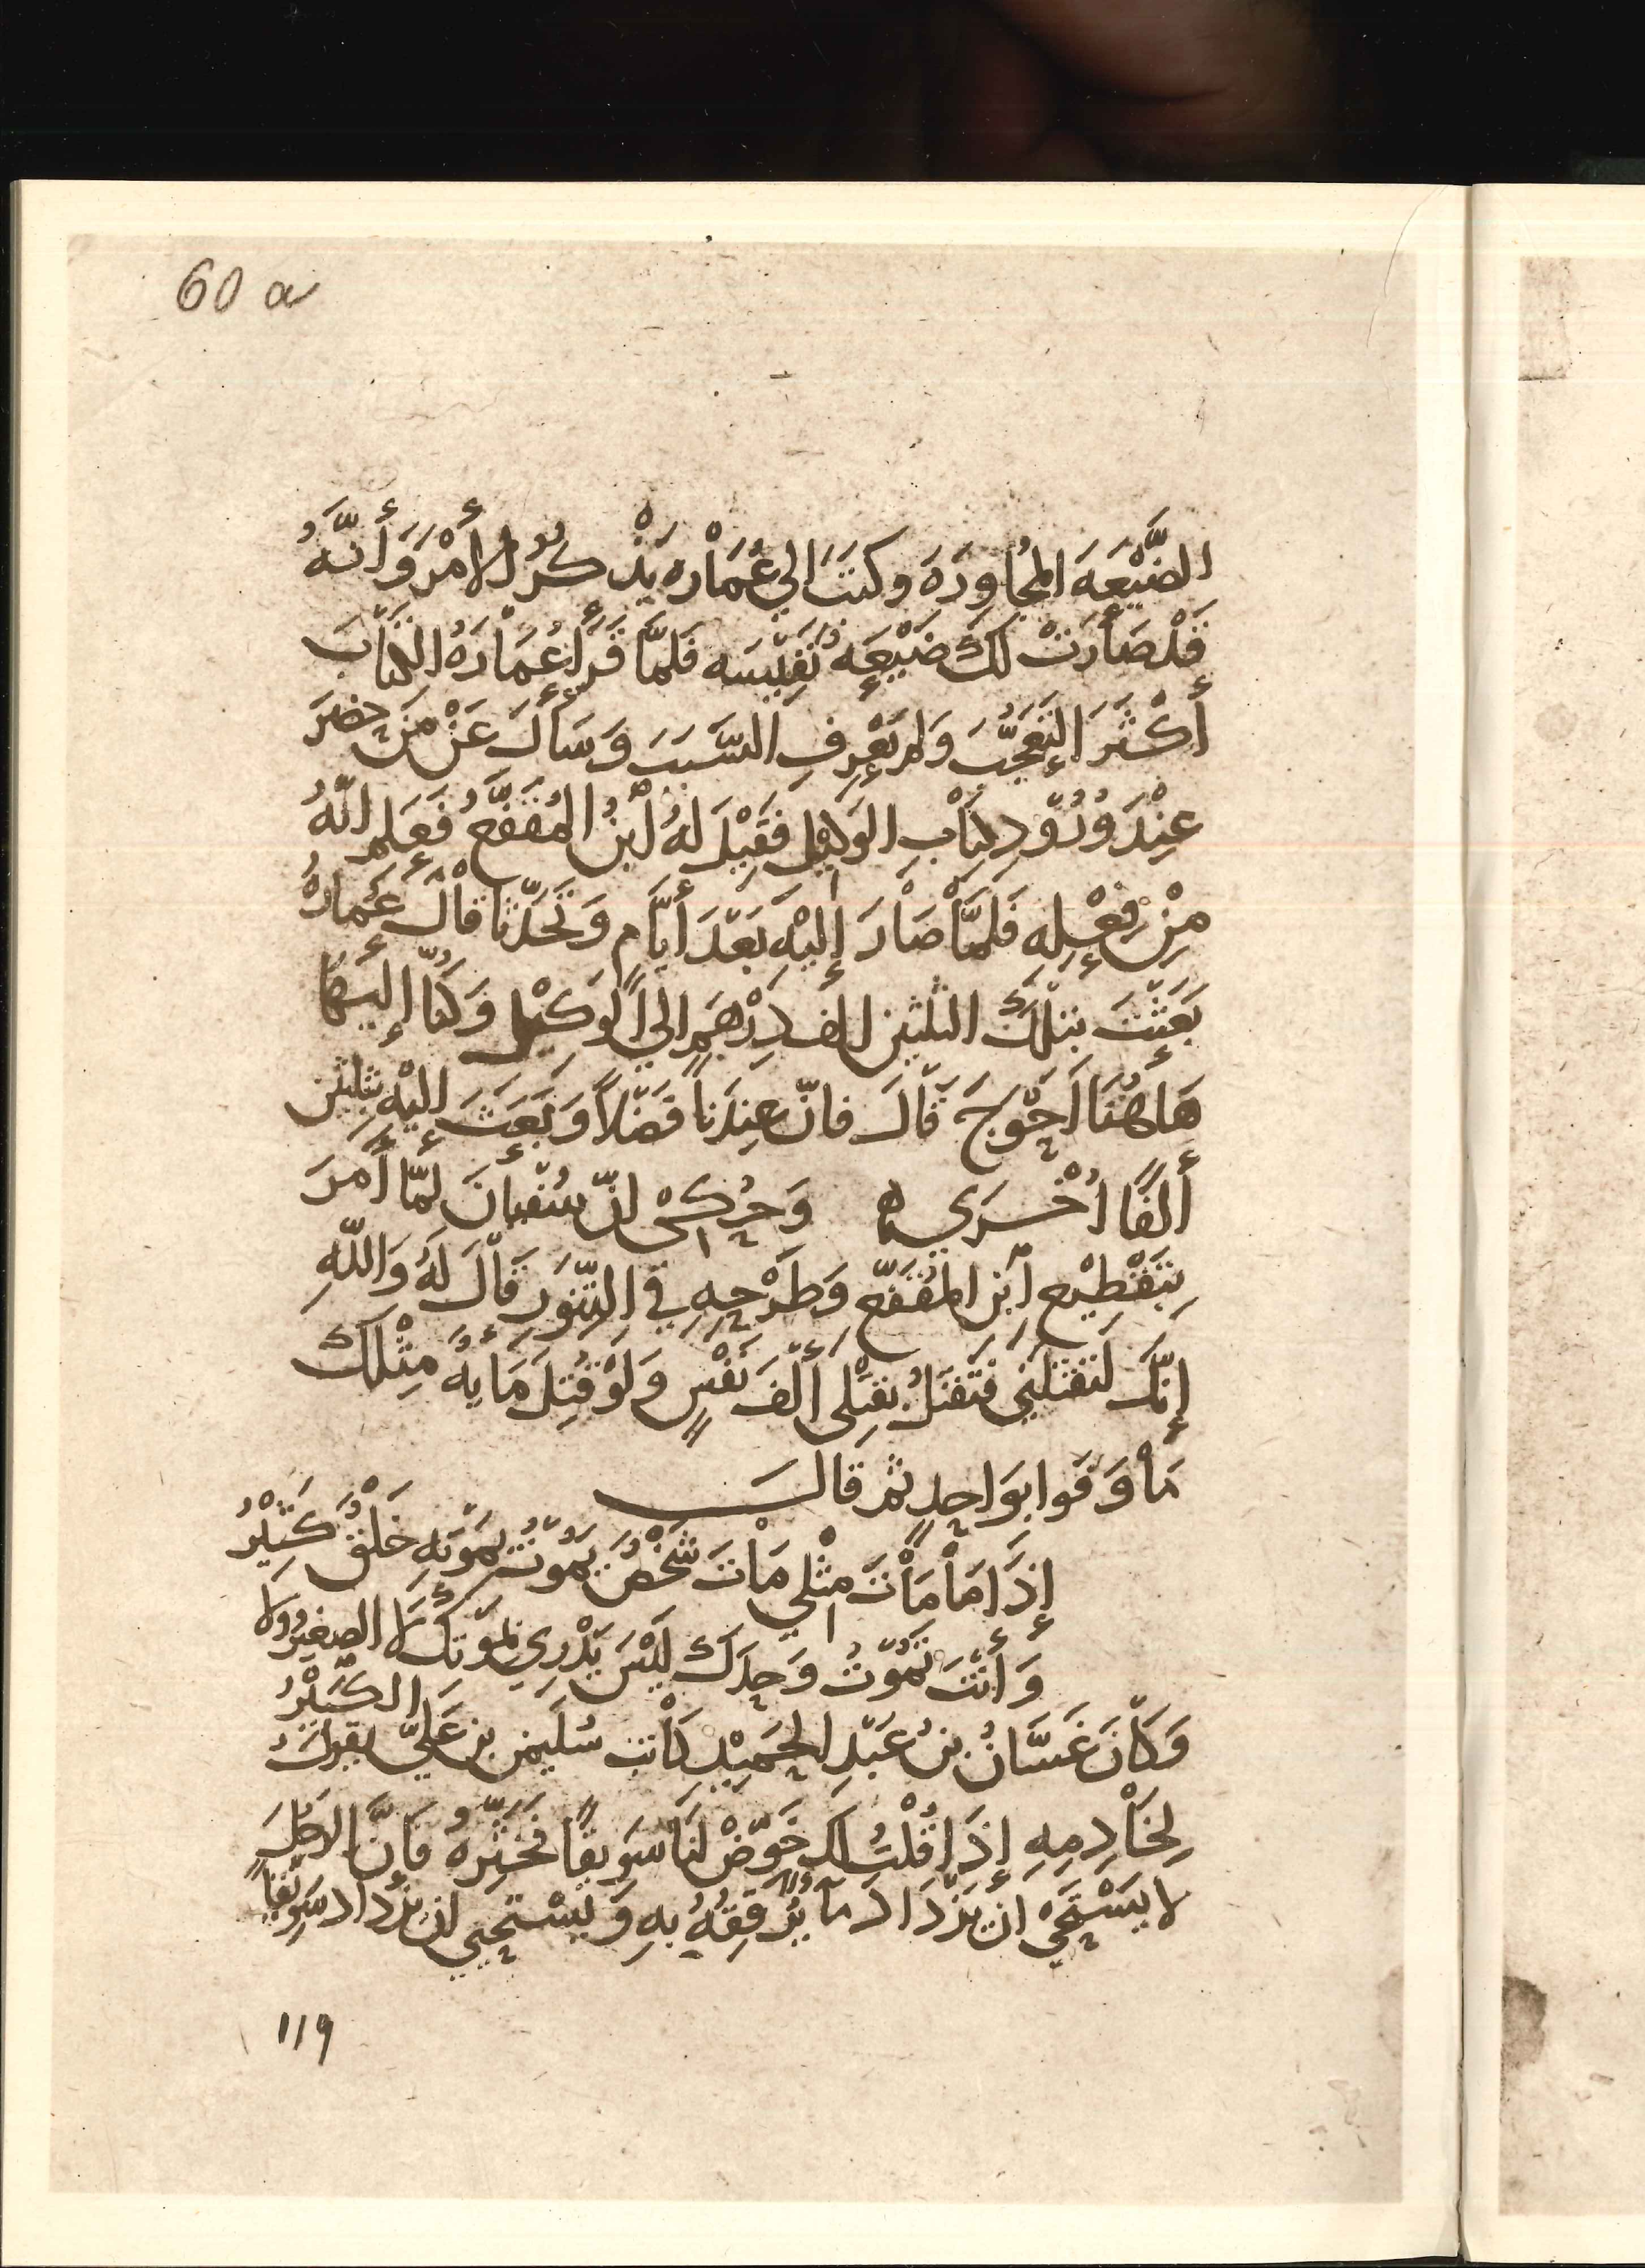 60 a
الضَّيْعَهَ المجُاوِرَهَ وكتَبَ الي عُمَاْره يَذْكُرُ الأَمْرَ وَأَنَّهُ
قَدْ صَاْرَتْ لَكَ ضَيْعَهٌ نَفِيْسَه فَلمَّا قَرَأَ عُمَاْرَهُ الكِتَاْبَ
أَكْثَرَ التَعَجُّبَ وَلم يَعْرِفِ السَّبَبَ وَسَأَلَ عَنْ مَنْ حضَرَ
عِنْدَ وُرُوْدِ كِتَاْبِ الوَكِيْلِ فَقِيْلَ لهُ اْبنُ المُقَفَّعِ فَعَلِم انّهُ
مِنْ فِعْلِهِ فَلمَّاْ صَاْرَ إِليْهِ بَعْدَ أَيَّامٍ وَتَحَدّثا قاْلَ عُمَارهُ
بَعَثْتَ بتلكَ الثلثين الف دِرْهَمٍ الي الوَكِيْلِ وَكنّا إِليَها
هَاهُنَا اَحْوَجَ قَاْلَ فانّ عِندَنا فَضْلاً وَبَعَثَ إِليْهِ بثلثين
أَلفًا اُخْرَي ه وَحُكِيَ انّ سُفْيانَ لمّا أَمَرَ
بِتَقْطِيْعِ اْبنِ المُقَفّعِ وَطَرْحِهِ فِي التَّنّوْرِ قَاْلَ لَهُ وَاللّهِ
إِنّكَ لتَقْتلنِي فتَقْتلُ بقَتْلِي أَلْفَ نَفْسٍ وَلَوْ قُتِلَ مَأيهٌ مِثْلكَ
مَاْ وَفَوا بوَاحِدٍ ثم قالَ
إِذَا مَاْ مَاْتَ مِثْلِي مَاْتَ شَخْصٌ يَمُوْتُ بمَوْتِهِ خَلْقٌ كثَيْرُ
وَأَنْتَ تمُوْتُ وَحدَكَ ليْسَ يَدْرِي بمَوْتِكَ لا الصغِيرُ ولا
الكَبِيْرُ
وَكاْنَ غَسَّانُ بنُ عَبْدِ الحَمِيْدِ كاْتب سُليمن بن عَليّ يقولُ
لِخَاْدِمِهِ إِذَا قُلْتُ لكَ خَوّضْ لنَا سَوِيقًا فَخَثِّرْهُ فَاِنَّ الرَّجلَ
لا يَسْتَحْيِي ان يَزْدَادَ مَاْءً يُرَقِّقُهُ بهِ وَيسْتَحْيي ان يَزْدَادَ سَوِيقًا
119